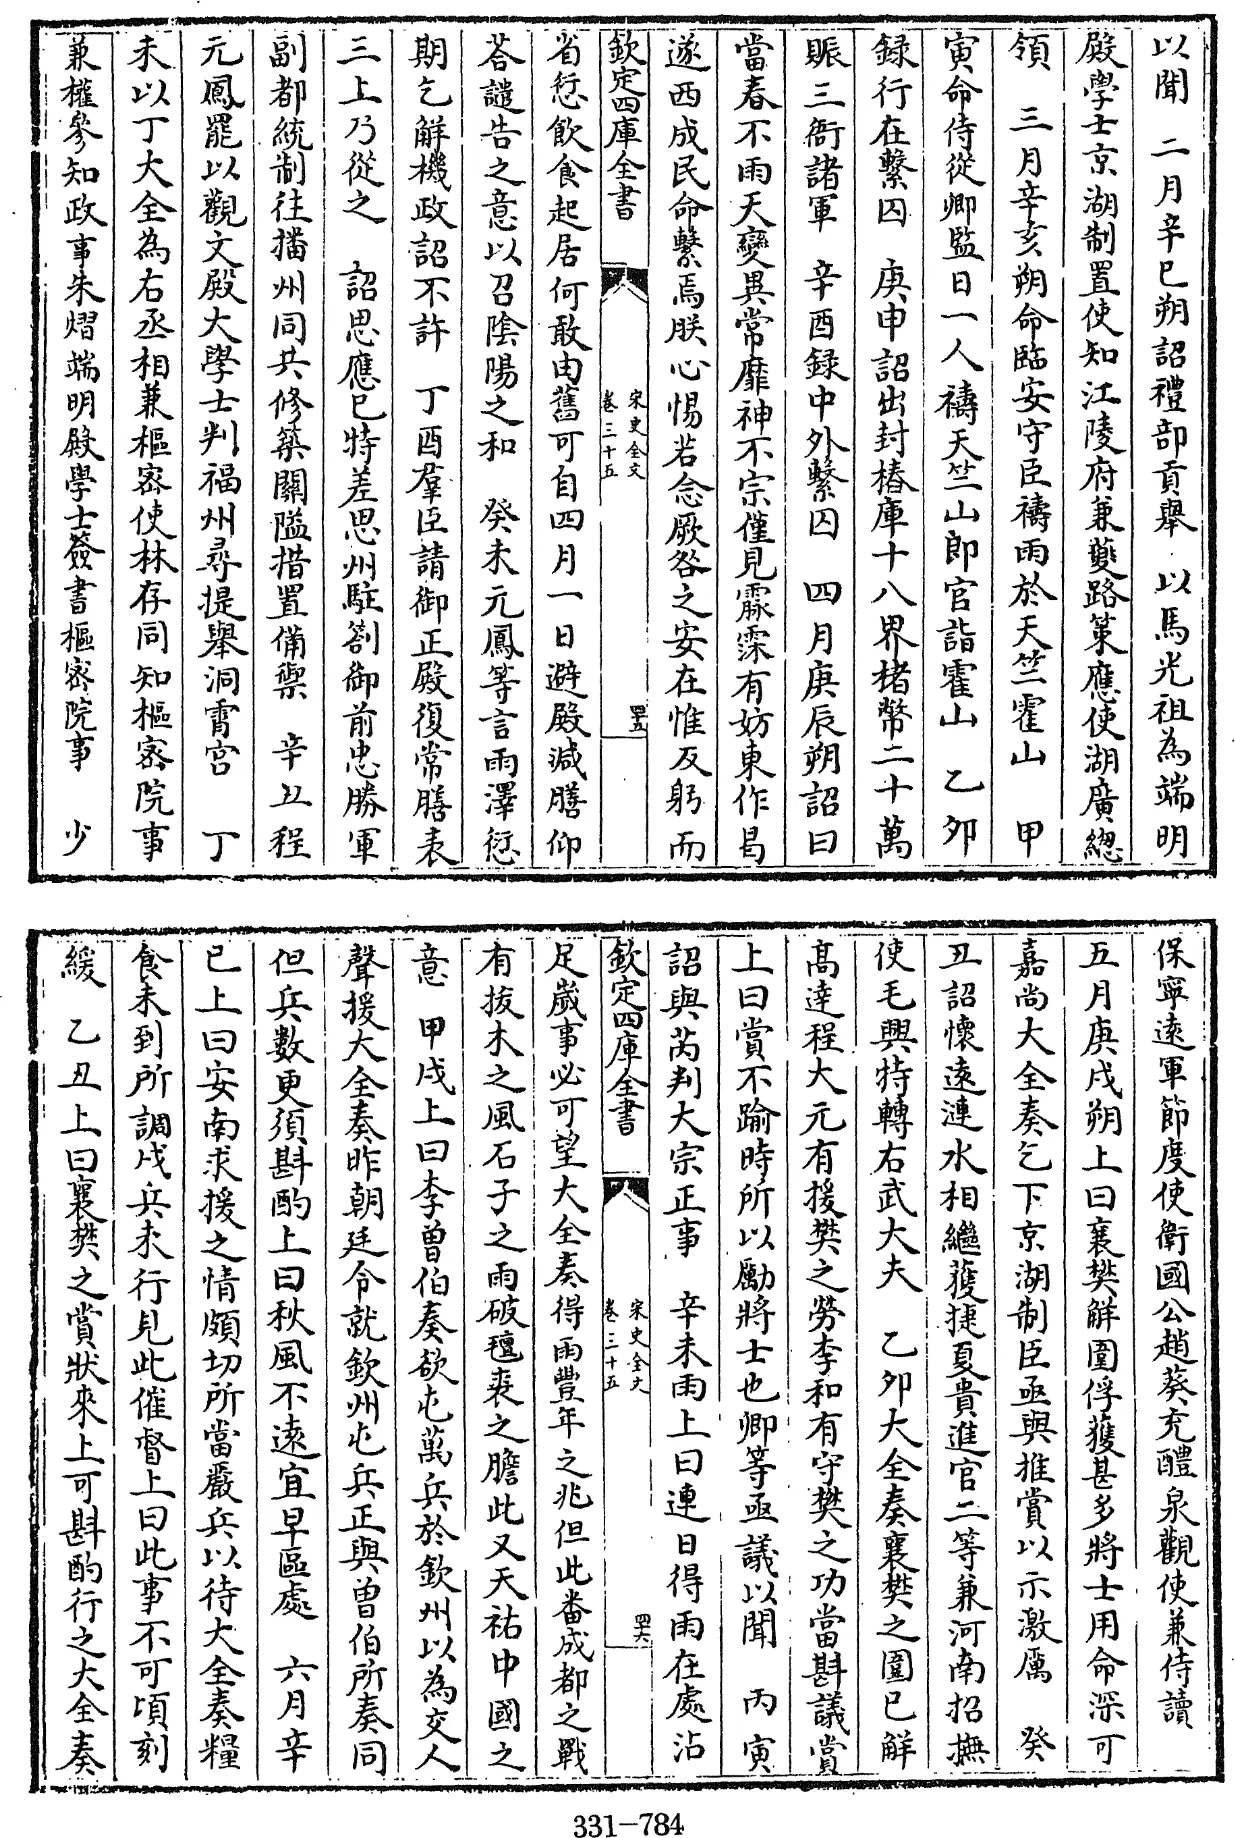 以聞　二月辛巳朔詔禮部貢舉　以馬光祖為端明
殿學士京湖制置使知江陵府兼夔路策應使湖廣總
領　三月辛亥朔命臨安守臣禱雨於天竺霍山　甲
寅命侍從卿監日一人禱天竺山郎官詣霍山　乙夘
録行在繫囚　庚申詔出封樁庫十八界楮幣二十萬
賑三衙諸軍　辛酉録中外繫囚　四月庚辰朔詔曰
當春不雨天變異常靡神不宗僅見霢霂有妨東作曷
遂西成民命繫焉朕心惕若念厥咎之安在惟反躬而
欽定四庫全書
宋史全文
卷三十五
四五
省愆飲食起居何敢由舊可自四月一日避殿減膳仰
荅譴告之意以召陰陽之和　癸未元鳳等言雨澤愆
期乞解機政詔不許　丁酉羣臣請御正殿復常膳表
三上乃從之　詔思應已特差思州駐劄御前忠勝軍
副都統制往播州同共修築關隘措置備禦　辛丑程
元鳳罷以觀文殿大學士判福州尋提舉洞霄宫　丁
未以丁大全為右丞相兼樞密使林存同知樞密院事
兼權參知政事朱熠端明殿學士簽書樞密院事　少
保寧遠軍節度使衛國公趙葵充醴泉觀使兼侍讀
五月庚戌朔上曰襄樊解圍俘獲甚多將士用命深可
嘉尚大全奏乞下京湖制臣亟與推賞以示激厲　癸
丑詔懷遠漣水相繼獲捷夏貴進官二等兼河南招撫
使毛興特轉右武大夫　乙夘大全奏襄樊之圍已解
髙達程大元有援樊之勞李和有守樊之功當斟議賞
上曰賞不踰時所以勵將士也卿等亟議以聞　丙寅
詔與芮判大宗正事　辛未雨上曰連日得雨在處沾
欽定四庫全書
宋史全文
卷三十五
四六
足嵗事必可望大全奏得雨豐年之兆但此番成都之戰
有拔木之風石子之雨破氊裘之膽此又天祐中國之
意　甲戌上曰李曾伯奏欲屯萬兵於欽州以為交人
聲援大全奏昨朝廷令就欽州屯兵正與曽伯所奏同
但兵數更須斟酌上曰秋風不遠宜早區處　六月辛
巳上曰安南求援之情頗切所當嚴兵以待大全奏糧
食未到所調戍兵未行見此催督上曰此事不可頃刻
緩　乙丑上曰襄樊之賞狀來上可斟酌行之大全奏
331-784